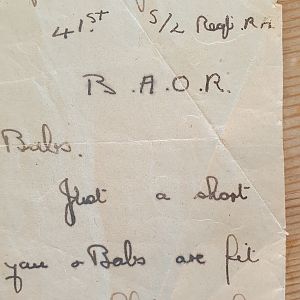 41.ST S/L Regt. R.A
B.A.O.R.
Babs.
Just a short
you & Babs are fit